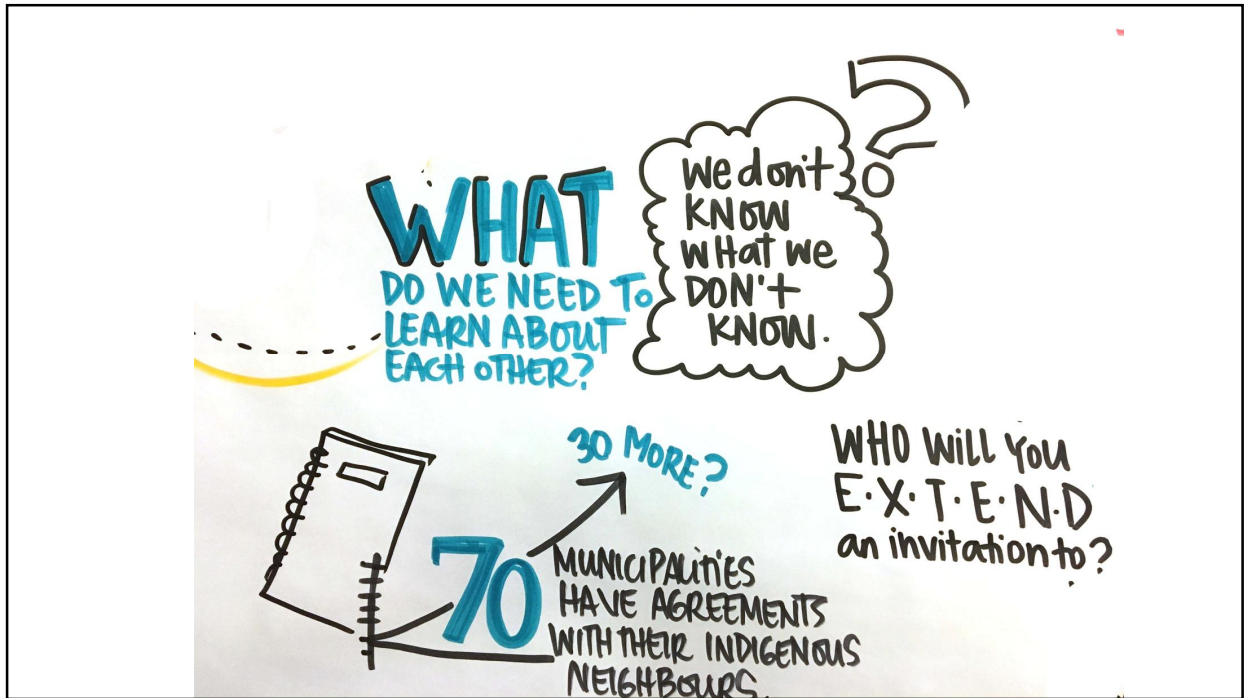 WHAT
DO WE NEED TO
LEARN ABOUT
EACH OTHER?
We don't
KNOW
WHat we
DON't
KNOW.
?
30 MORE?
70
MUNICIPALITIES
HAVE AGREEMENTS
WITH THEIR INDIGENOUS
NEIGHBOURS.
WHO WiLL YOU
E·X·T·E·N·D
an invitation to?